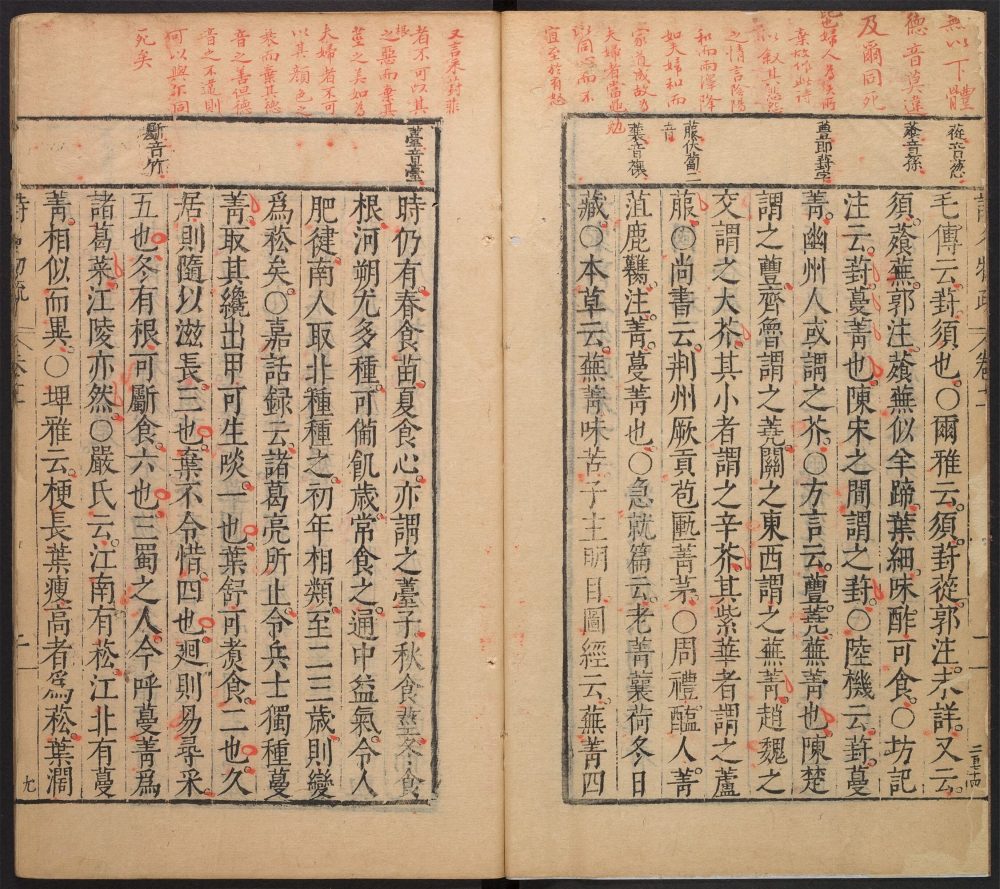 無以下體
德音莫違
及爾同死
也婦人為夫所
棄故作此詩
以叙其悲怨
之情言陰陽
和而澤降
如夫婦和而
家道成故為
夫婦者當黽勉
以同心而不
宜至於有怒
蓯音葱
蕵音孫
蘴即葑字
菔伏蔔二
音
蘘音穰
毛傳云葑須也○爾雅云須葑蓯郭注未詳又云
須蕵蕪郭注蕵蕪似羊蹄葉細味酢可食○坊記
注云葑蔓菁也陳宋之間謂之葑○陸機云葑蔓
菁幽州人或謂之芥○方言云蘴蕘蕪菁也陳楚
謂之蘴齊魯謂之蕘關之東西謂之蕪菁趙魏之
交謂之大芥其小者謂之辛芥其紫華者謂之蘆
菔○尚書云荆州厥貢苞匭菁茅○周禮醢人菁
菹鹿臡注菁蔓菁也○急就篇云老菁蘘荷冬日
藏○本草云蕪菁味苦子主明目圖經云蕪菁四
又言采葑菲
者不可以其根
之惡而棄其
莖之美如為
夫婦者不可
以其顏色之
衰而棄其德
音之善但德
音之不違則
可以與爾同
死矣
薹音臺
斸音竹
時仍有春食苗夏食心亦謂之薹子秋食莖冬食
根河朔尤多種可備飢歲常食之通中益氣令人
肥健南人取北種種之初年相類至二三歲則變
為菘矣○嘉話録云諸葛亮所止令兵士獨種蔓
菁取其纔出甲可生啖一也葉舒可煮食二也久
居則隨以滋長三也棄不令惜四也迴則易尋采
五也冬有根可斸食六也三蜀之人今呼蔓菁為
諸葛菜江陵亦然○嚴氏云江南有菘江北有蔓
菁相似而異○埤雅云梗長葉瘦高者為菘葉濶